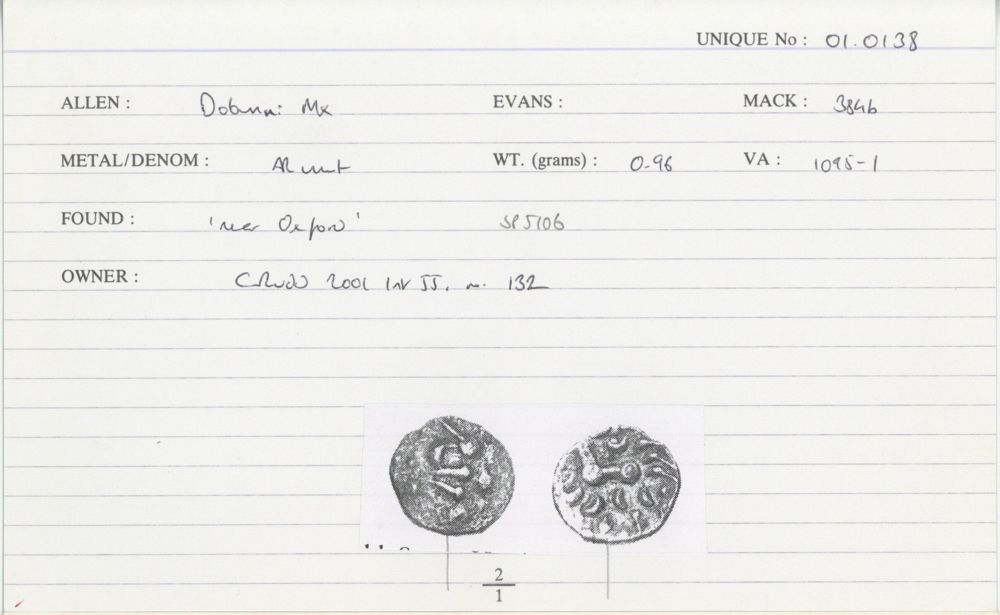 UNIQUE No : 01.0138
ALLEN : Dobunni Mx EVANS : MACK : 384b
METAL/DENOM : AR unit WT. (grams) : 0.96 VA : 1095-1
FOUND : 'near Oxford' SP5106
OWNER : CRUDD 2001 Inv II, n. 132
2
1